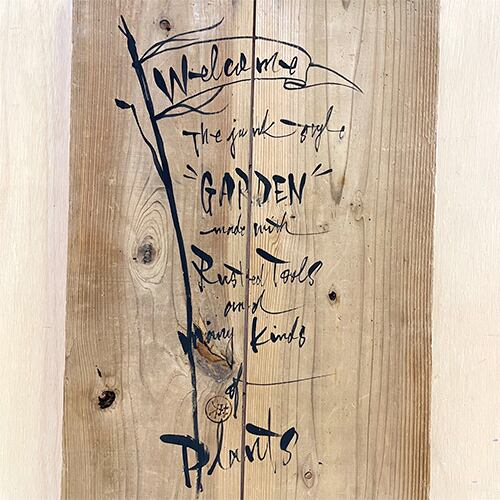 Welcome
The junk-style
"GARDEN"
made with
Rusted Tools
and
many Kinds
of
Plants